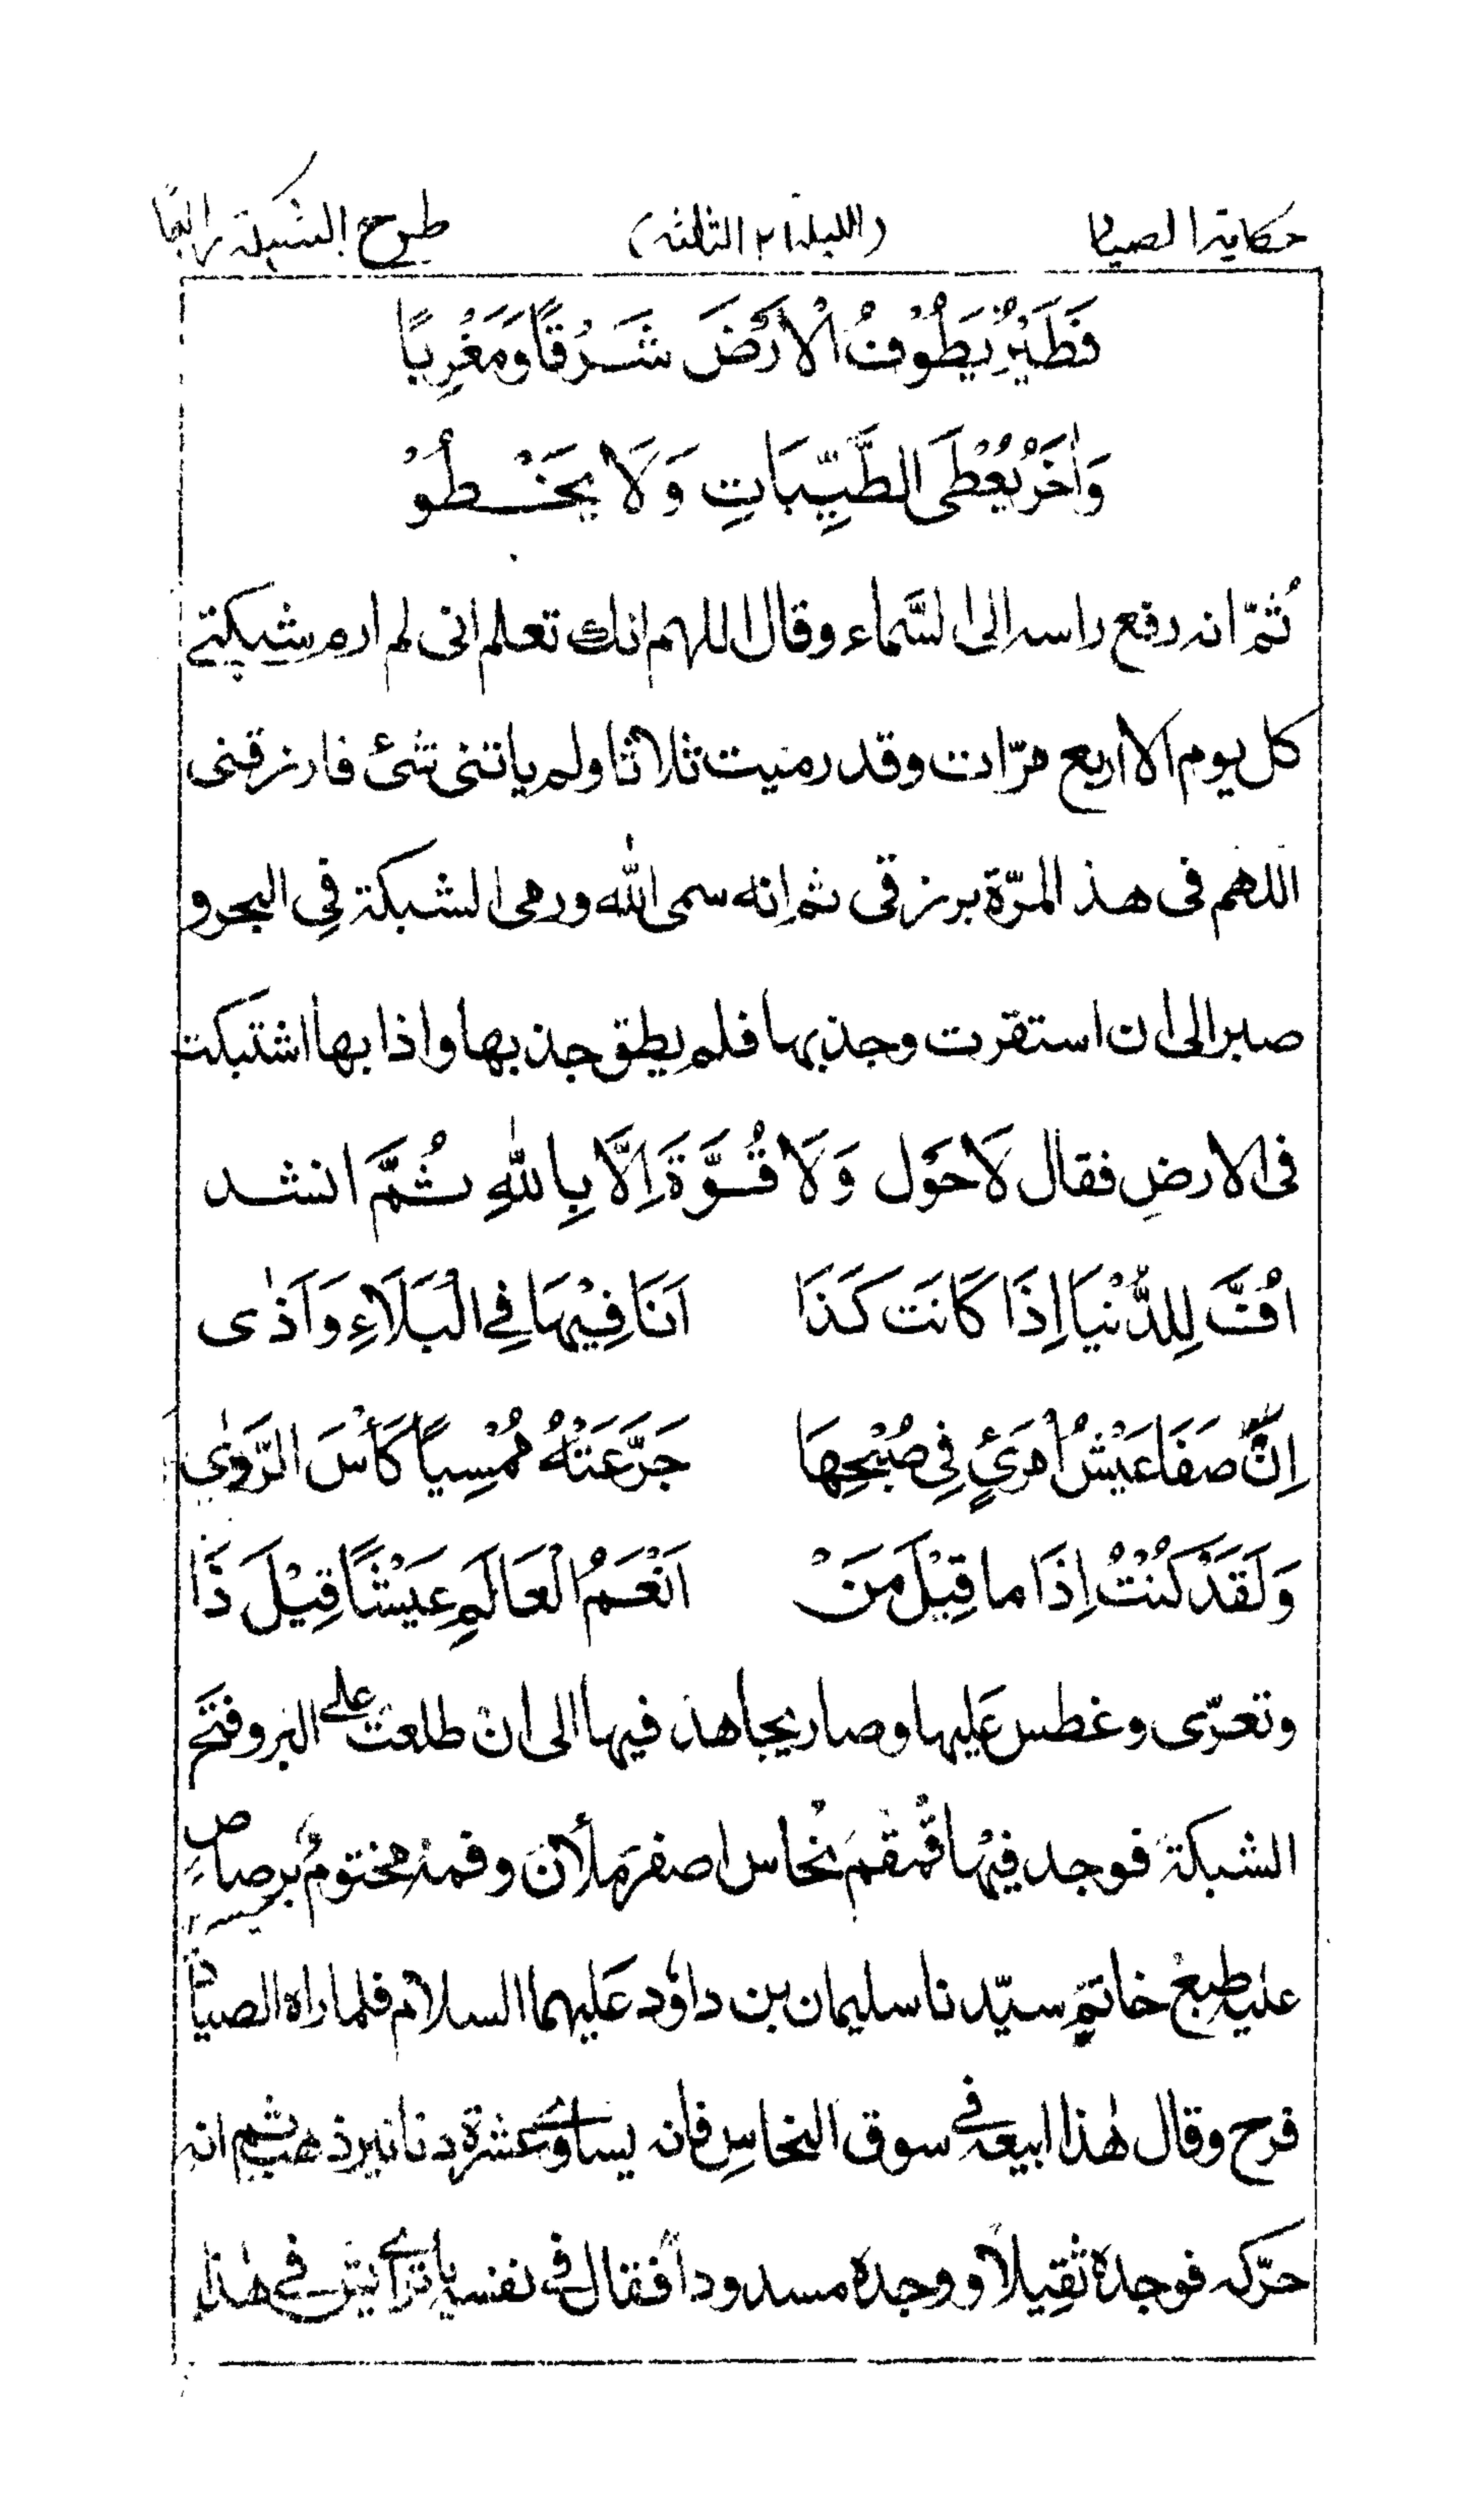 حكاية الصياد (الليلة ٣ الثالثة) طرح الشبكة رابعًا
فَطَيْرٌ يَطُوْفُ الْاَرْضَ شَرْقًا وَمَغْرِبًا
وَاٰخَرُ يُعْطَى الطَّيِّبَاتِ وَلَا يَخْطُوْ
ثُمّ انه رفع راسه الى السَّماء وقال اللهم انك تعلم انى لم ارم شبكتے
كل يوم الا اربع مرّات وقد رميت ثلاثا ولم ياتنى شئ فارزقنى
اللهم فى هذ المرّة برزقى ثم انه سمى الله ورمى الشبكة فِى البحر و
صبر الى ان استقرت وجذبها فلم يطق جذبها واذا بها اشتبكت
فى الارضِ فقال لَاحَوْل وَلَا قُوَّةَ اِلَّا بِاللّٰهِ ثُمَّ انشد
اُفَّ لِلدُّنْيَا اِذَا كَانَت كَذَا اَنَا فِيْهَا فِے الْبَلَاءِ وَاَذٰى
اِنْ صَفَا عَيْشُ امْرَئٍ فِى صُبْحِهَا جَرَّعَتْهُ مُمْسِيًا كَأسَ الرَّدٰى
وَلَقَدْ كُنْتُ اِذَا ما قِيْلَ مَنْ اَنْعَمُ الْعَالَمِ عَيْشًا قِيْلَ ذَا
وتعرّى وغطس عَليها وصار يجاهد فيها الى ان طلعت على البر وفتَح
الشبكة فوجد فيها قمقم نحاس اصفر مَلأنَ وفمهُ مختومٌ برصاصٍ
عليه طبع خاتمِ سيّدنا سليمان بن داوٗد عَليهما السلام فلما راه الصياد
فرح وقال هٰذا ابيعه فے سوق النحاسِ فانه يساوے عشرة دنانير ذهب ثم انه
حرّكه فوجدهٗ ثقِيلًا ووجدهٗ مسدودًا فقال فى نفسه يا ترے ايش فے هٰذا